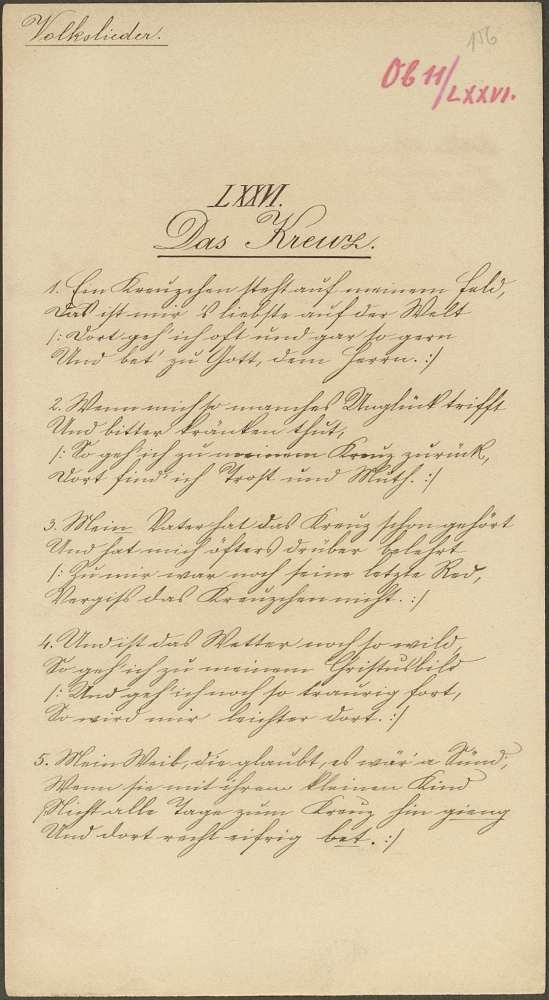 Volkslieder.
156
Ob 11/LXXVI.
LXXVI.
Das Kreuz.
1. Ein Kreuzchen steht auf meinem Feld,
Das ist mir 's liebste auf der Welt
/: Dort geh' ich oft und gar so gern
Und bet' zu Gott, dem Herrn. :/
2. Wenn mich so manches Unglück trifft
Und bitter kränken thut,
/: So geh' ich zu meinem Kreuz zurück,
Dort find' ich Trost und Muth. :/
3. Mein Vater hat das Kreuz schon gehört
Und hat mich öfters drüber belehrt
/: Zu mir war noch seine letzte Red,
Vergiss das Kreuzchen nicht. :/
4. Und ist das Wetter noch so wild,
So geh' ich zu meinem Christusbild
/: Und geh' ich noch so traurig fort,
So wird mir leichter dort. :/
5. Mein Weib, die glaubt, es wär' a Sünd',
Wenn sie mit ihrem kleinen Kind
/: Nicht alle Tage zum Kreuz hin gieng
Und dort recht eifrig bet. :/